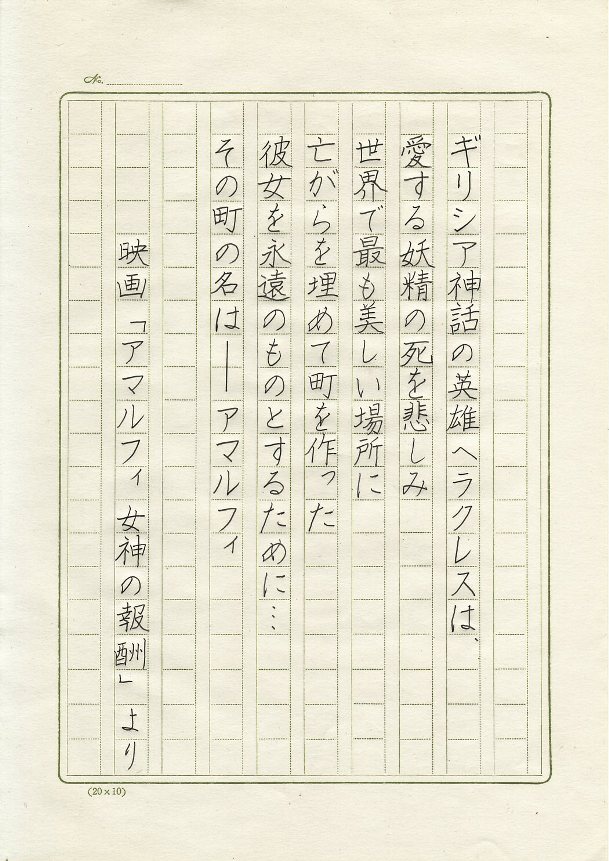 No.
ギリシア神話の英雄ヘラクレスは、
愛する妖精の死を悲しみ
世界で最も美しい場所に
亡がらを埋めて町を作った
彼女を永遠のものとするために…
その町の名は―アマルフィ
映画「アマルフィ 女神の報酬」より
(20×10)